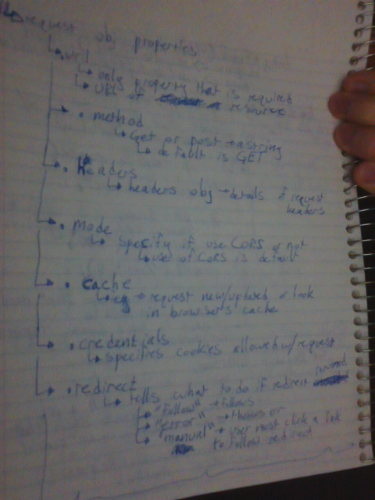 request obj properties
.url
only property that is required
URL of a resource
. method
Get or post as string
default is GET
. Headers
headers obj → details of request
headers
. mode
specify if use CORS or not
use of CORS is default
. cache
eg → request new/updated or look
in browsers cache
. credentials
specifies cookies allowed w/request
. redirect
tells what to do if redirect
"follow" → follows
"error" → throws error
"manual" → user must click a link
to follow redirect